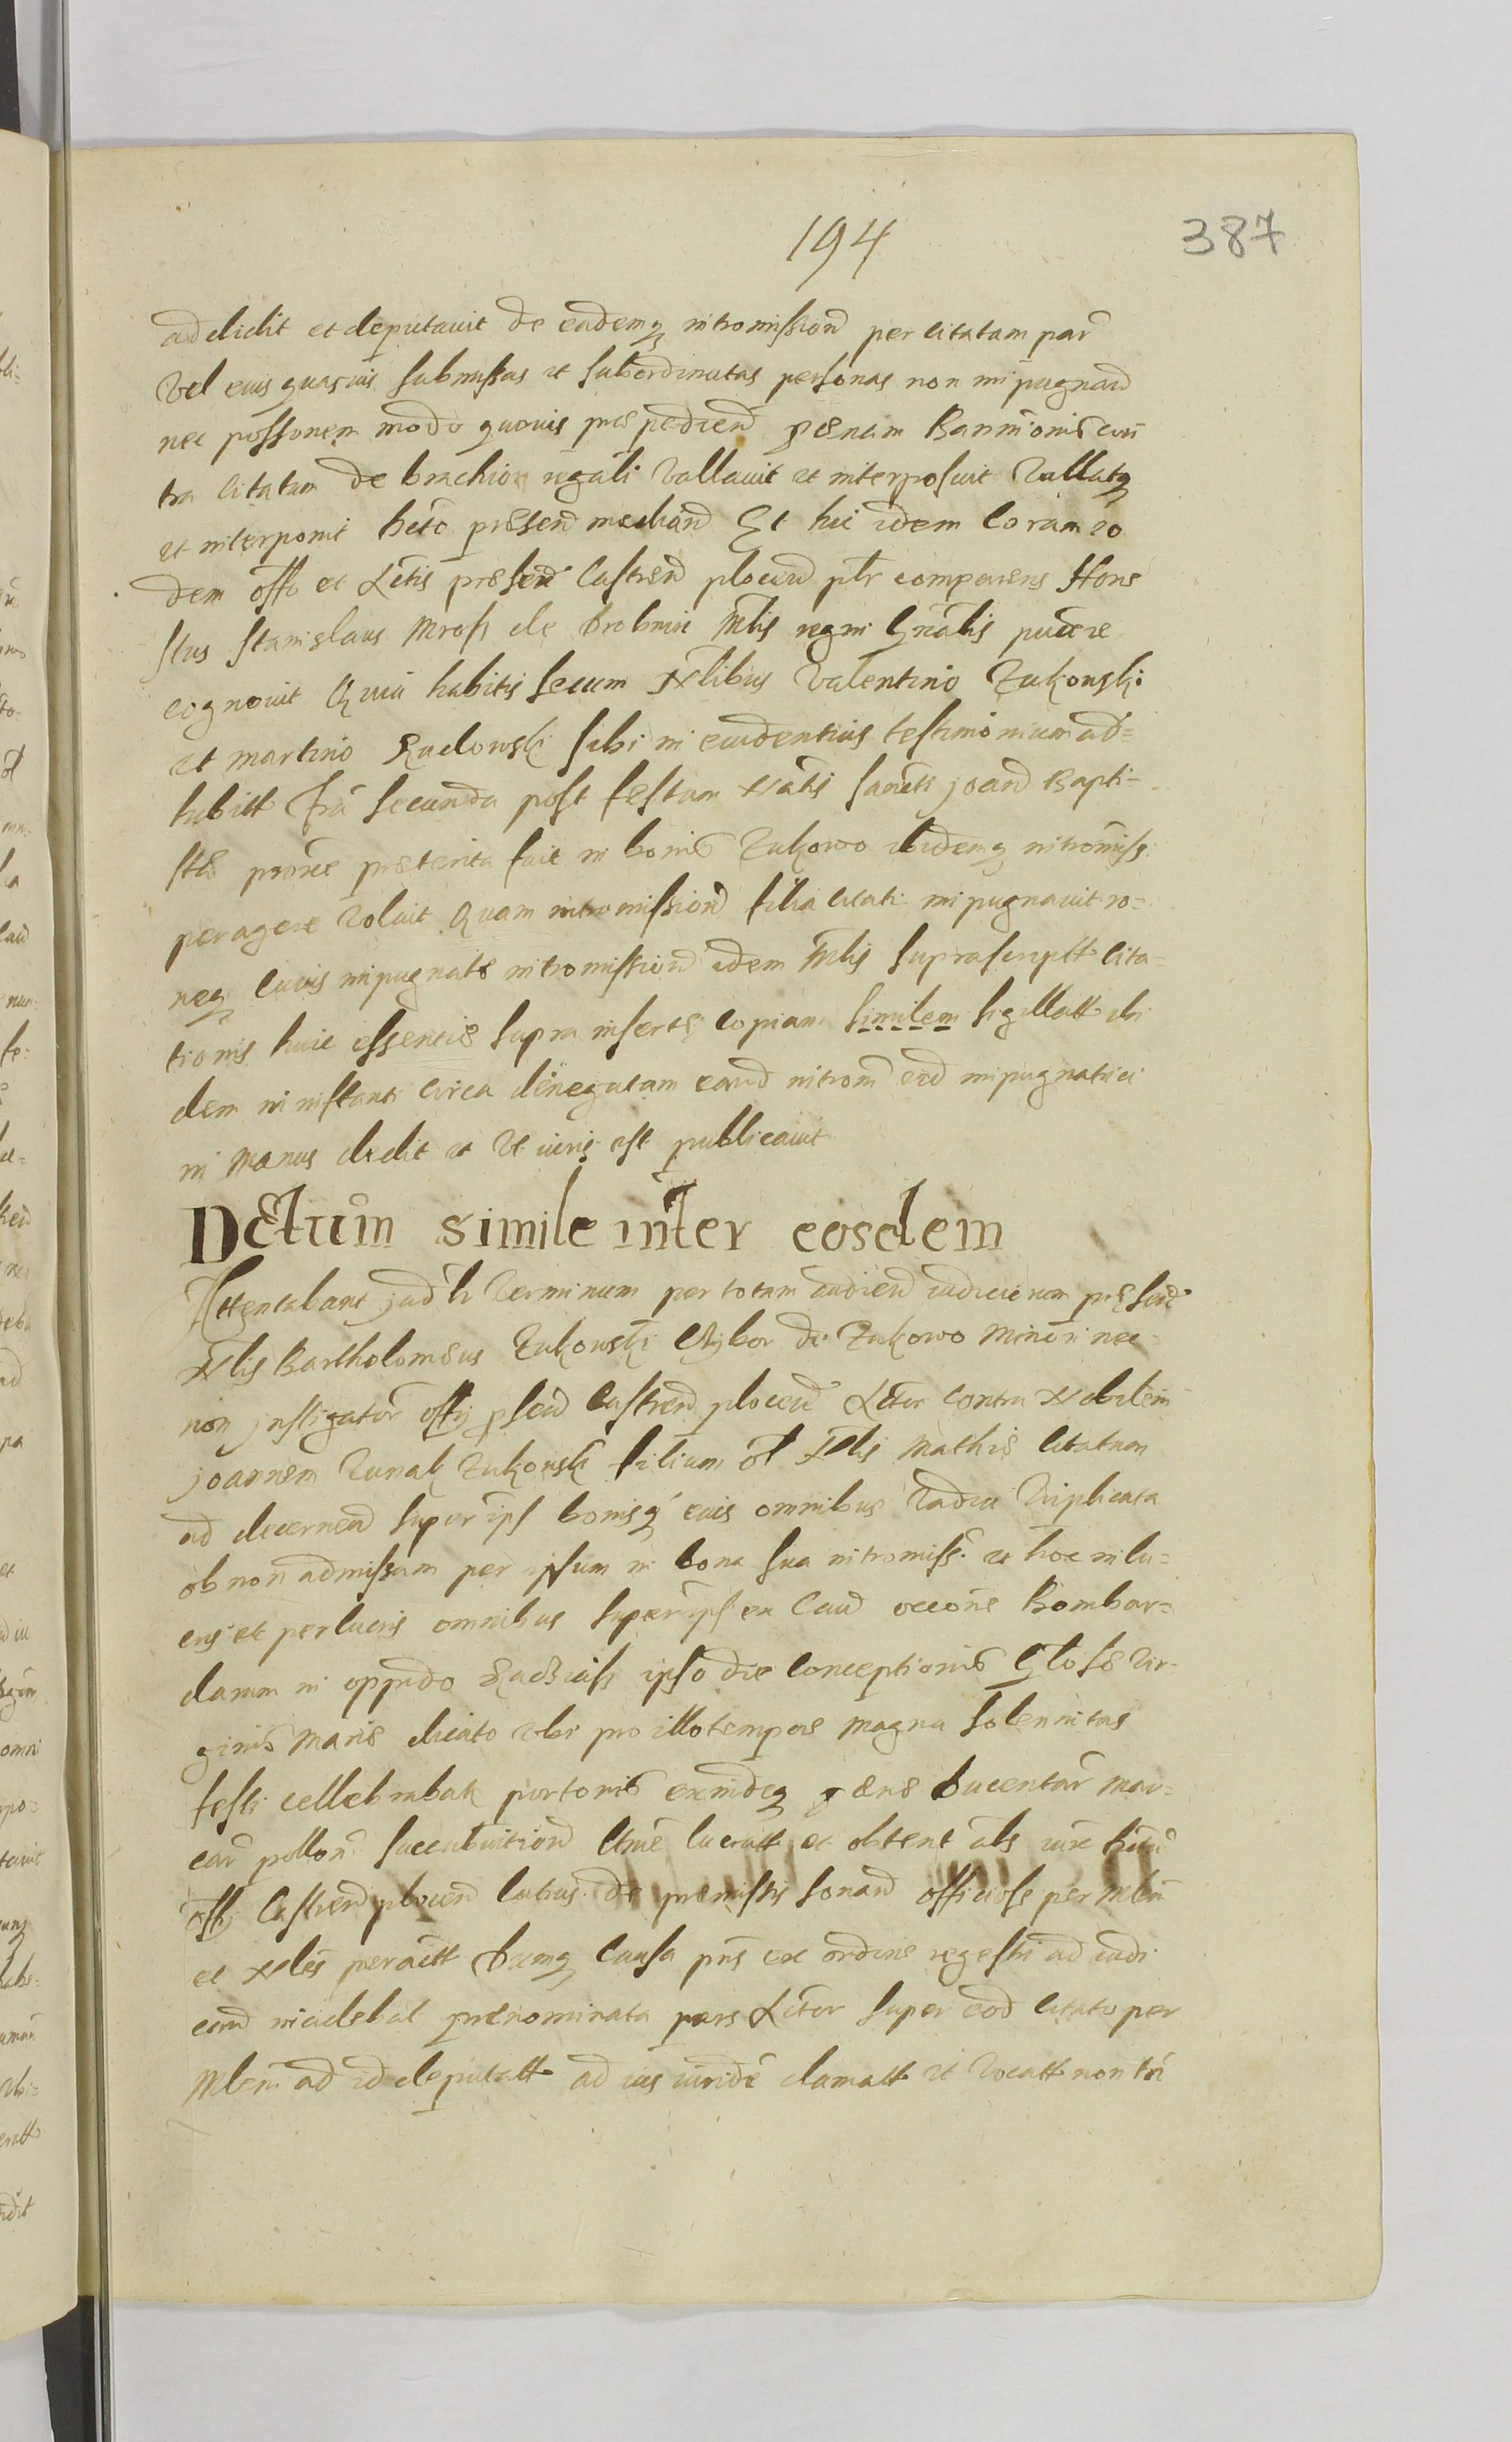 194
387
addidit et deputauit de eademq intromission per citatam par
Vel eius quasuis submissas et subordinatas personas non impugnand
nec possonem modo quouis præpediend pænam Bannionis con
tra citatam de brachio regali Vallauit et interposuit Vallatq
et interponit hcto præsen median Et hic idem Coram eo
dem offo et Actis præsen Castren plocen plr comparens Hone
stus Stanislaus Mross de Drobnin Mlis regni Gnalis
cognouit Quia habitis secum Nlibus Valentino Zukowski
et martino Radowski sibi in euidentius testimonium ad=
hibitt fra secunda post festum Natis sancti joan Bapti=
stæ proxie præterita fuit in bonis Zukowo ibidemq intromiss
peragere Voluit Quam intromission filia citati impugnauit ro=
neq Cuius impugnatæ intromission idem Mlis suprascriptt Cita=
tionis huic essentiæ supra insertæ Copiam similem sigillatt ibi
dem in instanti Circa denegatam eand introm eid impugnatrici
in manus dedit et Vt iuris est publicauit
Dctum simile inter eosdem
Attentabant jud h Terminum per totam audien iudicii non præsen
Nlis Bartholomæus Zukowski de Zukowo Minori nec=
non jnstigator offij psen Castren plocen Actor Contra Nobilem
joannem Zukowski filium ol Nlis Mathiæ citatum
ad decernen super ips bonisq eius omnibus Vadia Triplicata
ob non admissam per ipsum in bona sua intromiss. et hoc in lu=
eris et perlucris omnibus super ips ex Caus occone Bombar=
darum in oppido ipso die Conceptionis Glosæ Vir=
ginis Mariæ dicato Vbi pro illo tempore Magna solennitas
festi cellebrabatr portonis exindeq pænæ ducentar mar=
car pollon succubuition lucratt et obtent als iux
offij Castren plocen latius de præmissis sonan officiose per Mlem
et Nles peractt Dumq Causa pns ex ordine regestri ad iudi
cand incidebat prænominata pars Actor super eod citato per
Mlem ad id deputatt ad ius iuride clamatt et Vocatt non tn